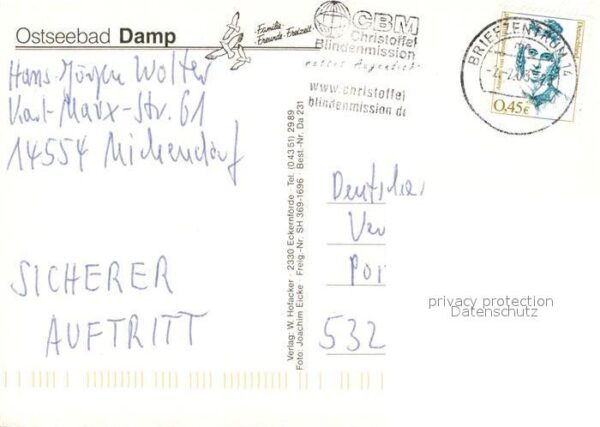 Ostseebad Damp
Familie-
Freunde-Freizeit
CBM
Christoffel
Blindenmission
rettet Augenlicht
www.christoffel
blindenmission.de
BRIEFZENTRUM 14
0,45€
Hans-Jürgen Wolter
Karl-Marx-Str. 61
14554 Michendorf
SICHERER
AUFTRITT
Verlag: W. Hofacker 2330 Eckernförde Tel. (0 43 51) 29 89
Foto: Joachim Eicke Freig.-Nr. SH 369-1696 Best.-Nr. Da 231
Deutscher
Ver
Por
532
privacy protection
Datenschutz